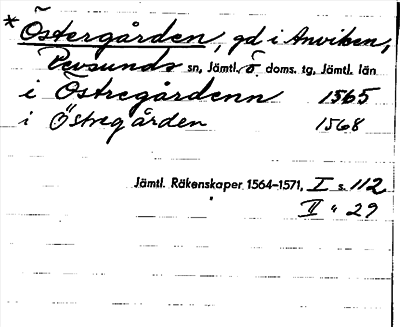 * Östergården, gd i Anviken,
Revsunds sn, Jämtl. ö doms. tg, Jämtl. län
i Östregårdenn 1565
i Östregården 1568
Jämtl. Räkenskaper 1564–1571, I s. 112
II " 29